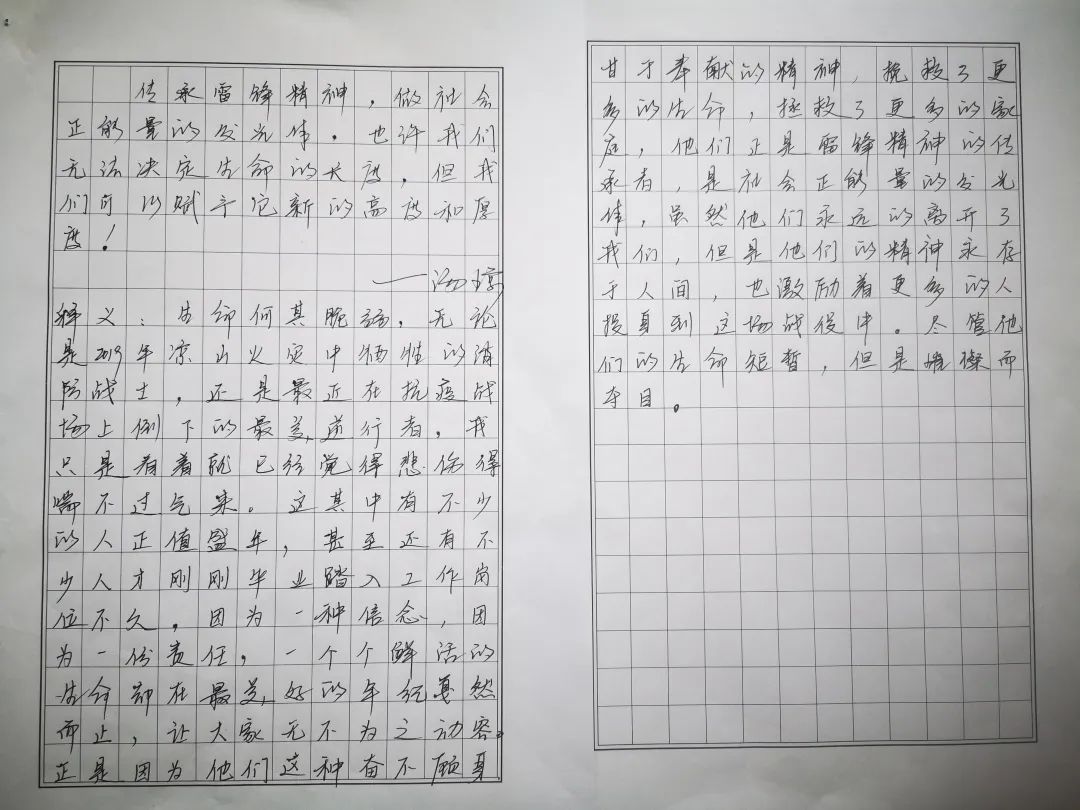 传承雷锋精神，做社会
正能量的发光体。也许我们
无法决定生命的长度，但我
们可以赋予它新的高度和厚
度！
——汤
释义：生命何其脆弱，无论
是2019年凉山火灾中牺牲的消
防战士，还是最近在抗疫战
场上倒下的最美逆行者，我
只是看着就已经觉得悲伤得
喘不过气来。这其中有不少
的人正值盛年，甚至还有不
少人才刚刚毕业踏入工作岗
位不久，因为一种信念，因
为一份责任，一个个鲜活的
生命却在最美好的年纪戛然
而止，让大家无不为之动容。
正是因为他们这种奋不顾身
甘于奉献的精神，挽救了更
多的生命，拯救了更多的家
庭，他们正是雷锋精神的传
承者，是社会正能量的发光
体，虽然他们永远的离开了
我们，但是他们的精神永存
于人间，也激励着更多的人
投身到这场战役中。尽管他
们的生命短暂，但是璀璨而
夺目。